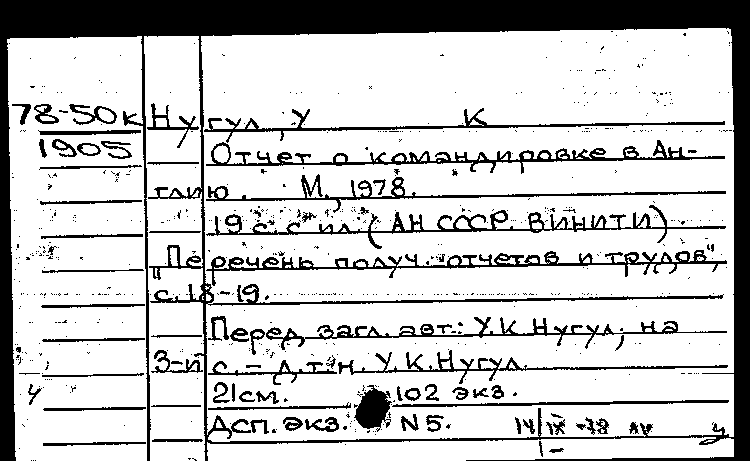 78-50к Нугул, У К
1905
Отчет о командировке в Ан-
глию. М., 1978.
19 с. с ил. (АН СССР. ВИНИТИ).
"Перечень получ. отчетов и трудов",
с. 18-19.
Перед загл. авт.: У.К Нугул; на
3-й с. - д.т.н. У.К.Нугул.
ч 21см. 102 экз.
Дсп. экз. N 5. 14/IX -78